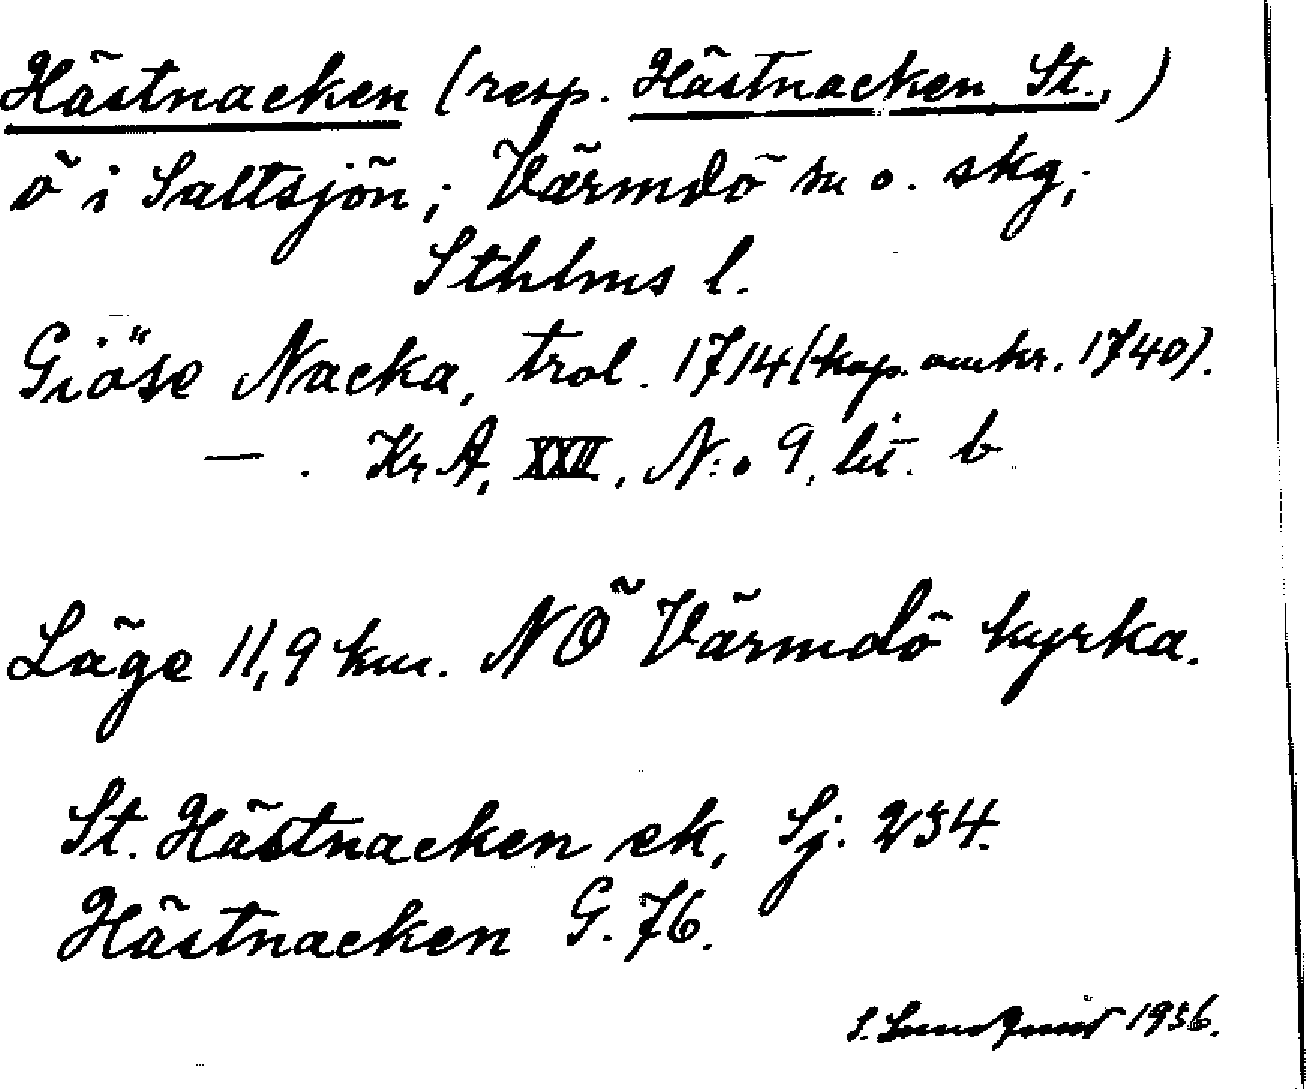 Hästnacken (resp. Hästnacken, St.,)
ö i Saltsjön; Värmdö sn o. skg;
Sthlms l.
Giöse Nacka, trol. 1714 (kop. omkr. 1740).
— . Kr A, XXII, N:o 9, lit. b
Läge 11,9 km. NÖ Värmdö kyrka.
St. Hästnacken ek, Sj. 234.
Hästnacken G. 76.
1936.